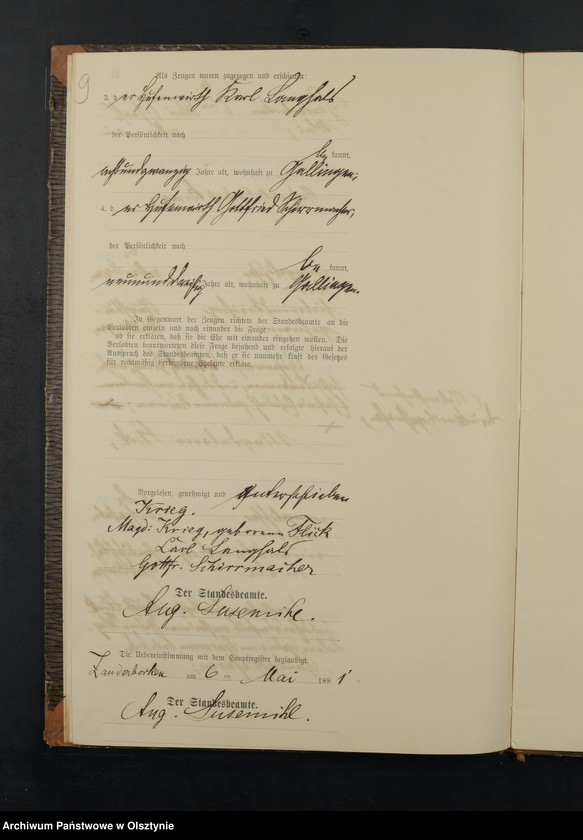 9
Als Zeugen waren zugezogen und erschienen:
3. der Hufenwirth Karl Langhals
der Persönlichkeit nach
be kannt,
achtundzwanzig Jahre alt, wohnhaft zu Gallingen;
4. der Hufenwirth Gottfried Schirrmacher,
der Persönlichkeit nach
be kannt,
neununddreißig Jahre alt, wohnhaft zu Gallingen.
In Gegenwart der Zeugen richtete der Standesbeamte an die
Verlobten einzeln und nach einander die Frage:
ob sie erklären, daß sie die Ehe mit einander eingehen wollen. Die
Verlobten beantworteten diese Frage bejahend und erfolgte hierauf der
Ausspruch des Standesbeamten, daß er sie nunmehr kraft des Gesetzes
für rechtmäßig verbundene Eheleute erkläre.
Vorgelesen, genehmigt und unterschrieben
Krieg.
Magd: Krieg, geborene Flick
Carl Langhals
Gottfr. Schirrmacher
Der Standesbeamte.
Aug. Susemihl.
Die Uebereinstimmung mit dem Hauptregister beglaubigt.
Zanderborken am 6 ten Mai 1881
Der Standesbeamte.
Aug. Susemihl.
Archiwum Państwowe w Olsztynie